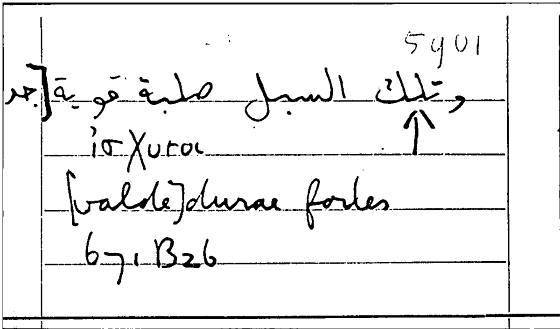 5901
وتلك السبل صلبة قوية [جد
ἰσχυραι
[valde] durae fortes
671 B26